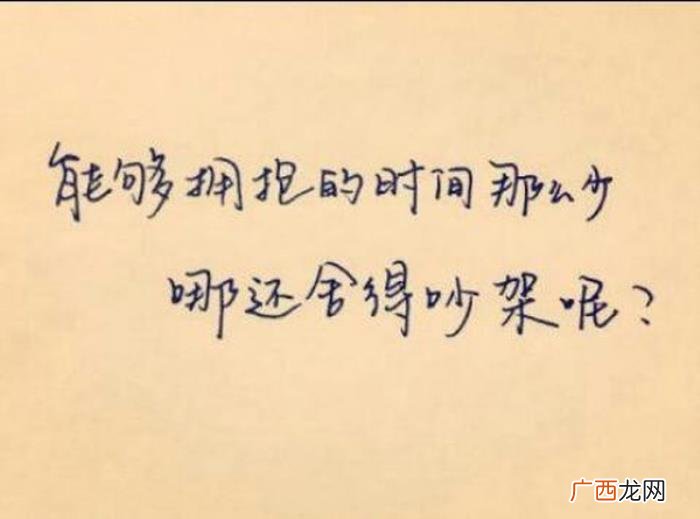 能够拥抱的时间那么少
哪还舍得吵架呢?
广西龙网